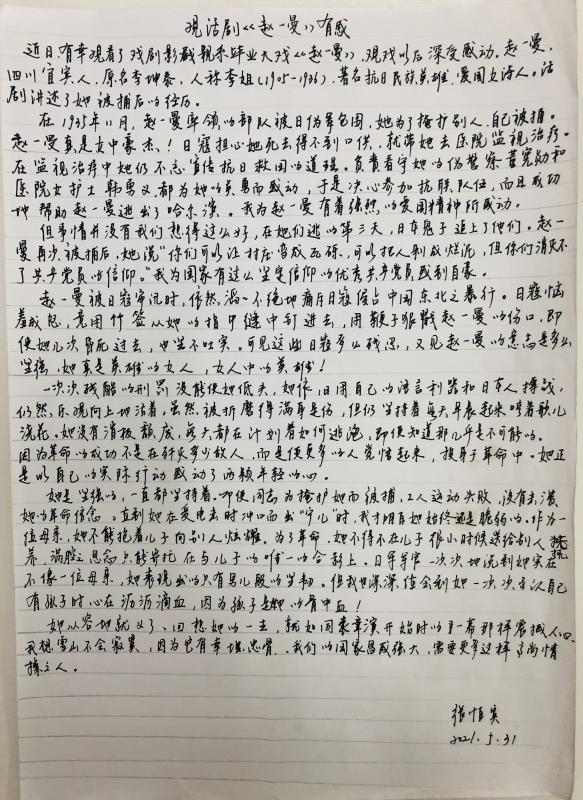 观话剧《赵一曼》有感
近日有幸观看了戏剧影视靓系毕业大戏《赵一曼》,观戏以后深受感动。赵一曼,
四川宜宾人,原名李坤泰,人称李姐(1905-1936),著名抗日民族英雄、爱国女诗人。话
剧讲述了她被捕后的经历。
在1935年11月,赵一曼率领的部队被日伪军包围,她为了掩护别人,自己被捕。
赵一曼真是女中豪杰!日寇担心她死去得不到口供,就带她去医院监视治疗。
在监视治疗中她仍不忘宣传抗日救国的道理。负责看守她的伪警察董宪勋和
医院女护士韩勇义都为她的英勇而感动,于是决心参加抗联队伍,而且成功
地帮助赵一曼逃出了哈尔滨。我为赵一曼有着强烈的爱国精神所感动。
但事情并没有我们想得这么好,在她们逃的第三天,日本鬼子追上了他们。赵一
曼再次被捕后,她说"你们可以让村庄变成瓦砾,可以把人剁成烂泥,但你们消灭不
了共产党员的信仰。"我为国家有这么坚定信仰的优秀共产党员感到自豪。
赵一曼被日寇审讯时,依然滔滔不绝地痛斥日寇侵占中国东北之暴行。日寇恼
羞成怒,竟用竹签从她的指甲缝中钉进去,用鞭子狠戳赵一曼的伤口,即
使她几次昏死过去,也坚不吐实。可见这些日寇多么残忍,又见赵一曼的意志是多么
坚强,她真是英雄的女人,女人中的英雄!
一次次残酷的刑罚没能使她低头,她依旧用自己的语言利器和日本人搏战,
仍然乐观向上地活着。虽然被折磨得满身是伤,但仍坚持着每天早晨起来哼着歌儿
浇花。她没有消极颓废,每天都在计划着如何逃跑,即使知道那几乎是不可能的。
因为革命的成功不是在歼灭多少敌人,而是使更多的人觉悟起来,投身于革命中。她正
是以自己的实际行动感动了两颗年轻的心。
她是坚强的,一直都坚持着。即使同志为掩护她而被捕,工人运动失败,没有击溃
她的革命信念。直到她在受电击时冲口而出"宁儿"时,我才明白她始终还是脆弱的。作为一
位母亲,她不能抱着儿子向别人炫耀。为了革命,她不得不在儿子很小时候送给别人抚
养,满腔之思念只能寄托在与儿子的唯一的合影上。日军军官一次次地说到她实在
不像一位母亲,她表现出的只有男儿般的坚韧。但我也深深体会到她一次次否认自己
有孩子时心在沥沥滴血,因为孩子是她的骨中血!
她从容地就义了。回想她的一生,就如同表演开始时的第一幕那样震撼人心。
我想雪山不会寂寞,因为它有幸埋忠骨。我们的国家昌盛强大,需要更多这样高尚情
操之人。
2021.5.31